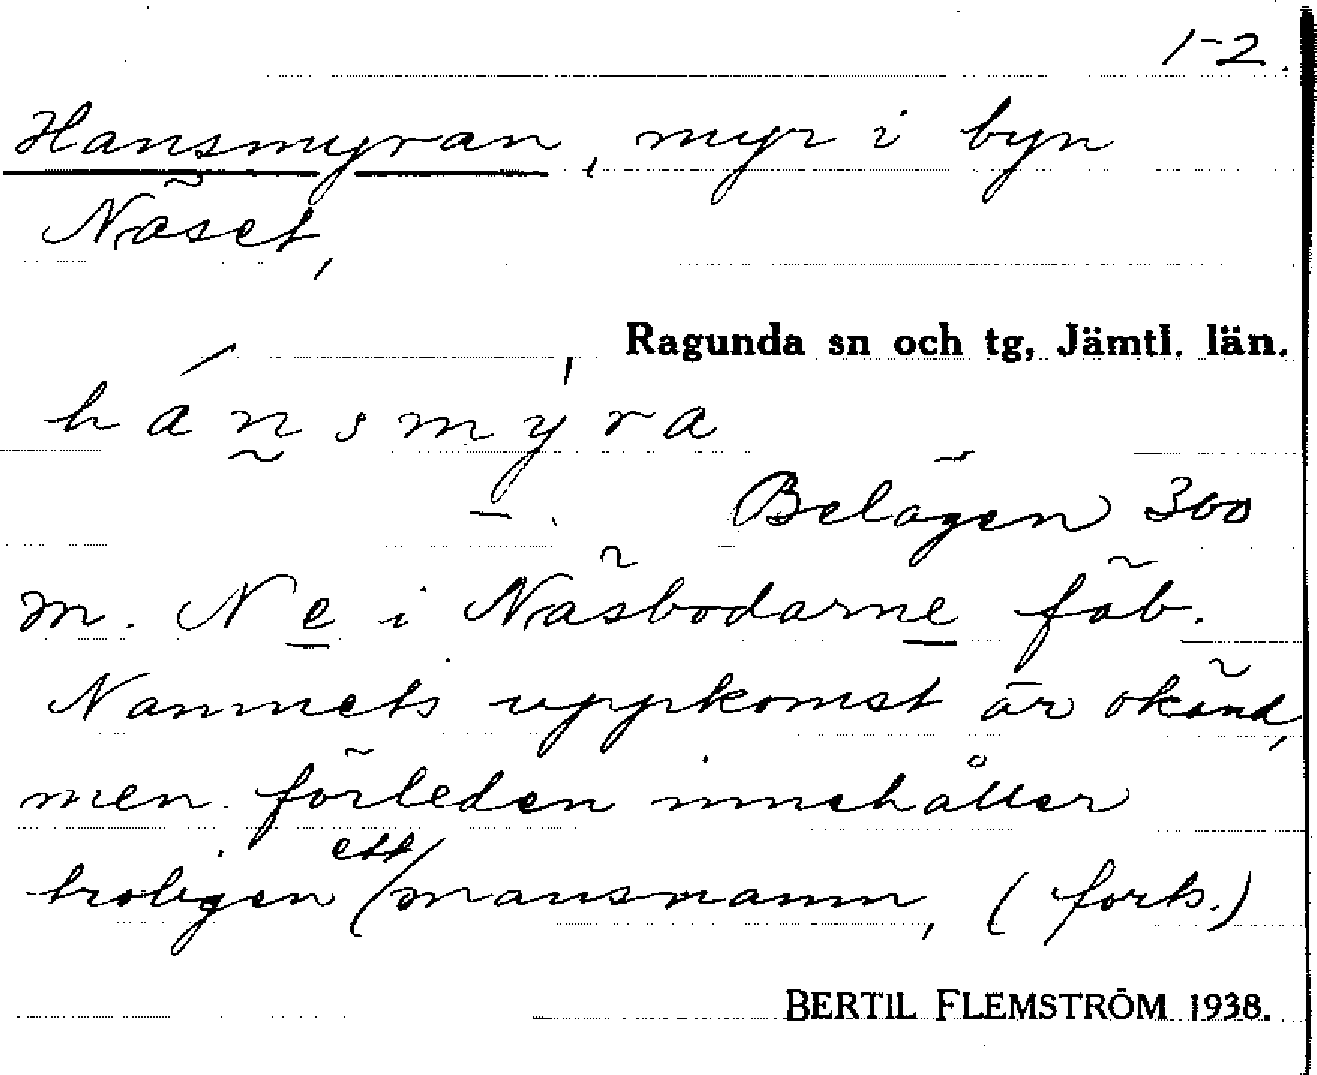 1-2.
Hansmyran, myr i byn
Näset,
Ragunda sn och tg, Jämtl. län.
hánsmýra
Belägen 300
m. N e i Näsbodarne fäb.
Namnets uppkomst är okänd,
men förleden innehåller
troligen ett mansnamn, (forts.)
BERTIL FLEMSTRÖM 1938.